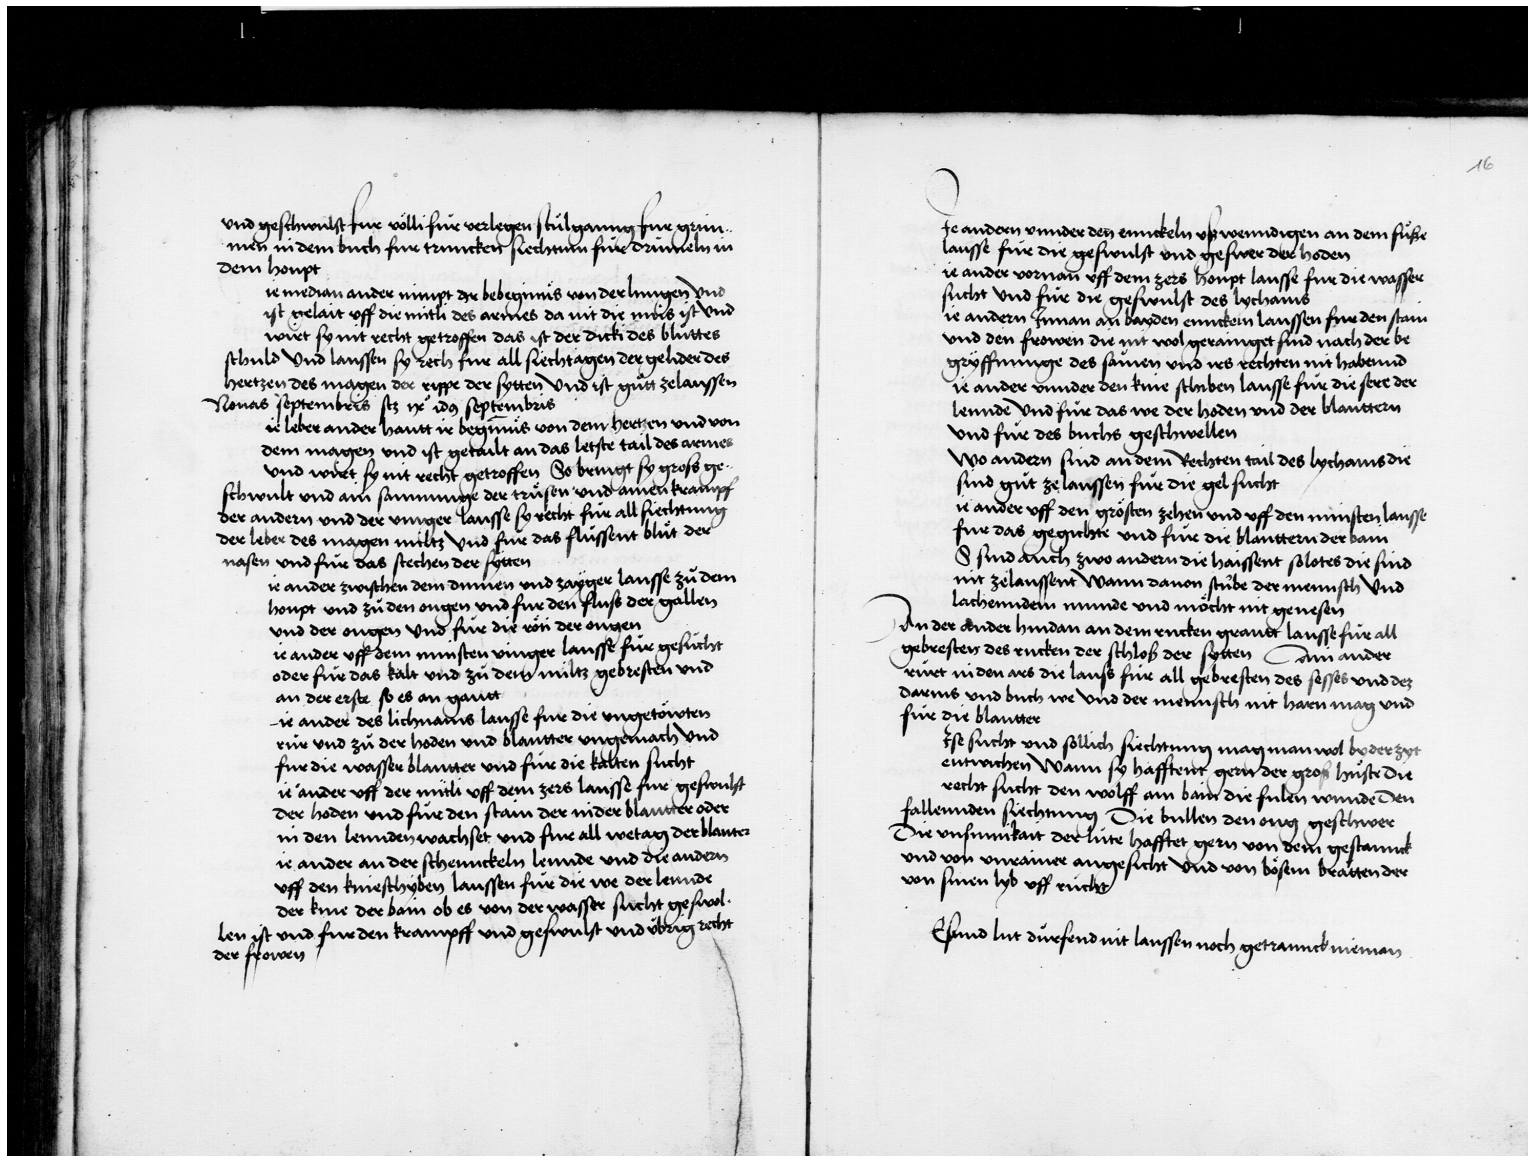 und geschwulst fur völli für verlegen stůlganng fur grim..
men in dem buch fur truncken siechtum für drümeln in
dem houpt
ie median ander nimpt ir bebeginnůs von der lungen und
ist gelait uff die mitli des armes da nit die můs ist und
wirt sy nit recht getroffen das ist der dicki des bluttes
schuld und laussen sy rech fur all siechtagen der gelider des
hertzen des magen der rippe der sytten und ist gůtt zelaussen
Nonas septembris idus septembris
ie leber ander hautt ir beginnůs von dem hertzen und von
dem magen und ist getailt an das letste tail des armes
und wirt sy nit recht getroffen So bringt sy gross ge..
schwult und ain samnunge der trůsen und ainen krampf
der andern und der vinger lausse sy recht für all siechtung
der leber des magen miltz und für das flüssent blůt der
nasen und für das stechen der sytten
ie ander zwischen dem dumen und zayger lausse zů dem
houpt und zů den ougen und fur den fluss der gallen
und der ougen und für die röti der ougen
ie ander uff dem minsten vinger lausse für gesucht
oder für das kalt und zů dem miltz gebresten und
an der erste so es an gautt
ie ander des lichnams lausse fur die ungetöwten
rür und zů der hoden und blautter ungemach und
fur die wasser blautter und für die kalten sucht
ie ander uff der mitli uff dem zers lausse für geswulst
der hoden und für den stain der in der blautter oder
in den lennden wachset und für all wetag der blauter
ie ander an der schennckeln lennde und die andern
uff den knieschyben laussen für die we der lennde
der knie der bain ob es von der wasser sucht geswol-
len ist und fur den krampff und geswulst und übrig recht
der frowen
16
Ie andern unnder den ennckeln ußwenndigen an dem fůße
lausse für die geswulst und geswer der hoden
ie ander vornan uff dem zers houpt lausse fur die wasser
sucht und für die geswulst des lychams
ie andern Innan an bayden ennckeln laussen für den stain
und den frowen die nit wol gerainiget sind nach der be
gryffnunge des samen und irs rechten nit habennd
ie ander unnder den knie schiben lausse für die sere der
lennde und für das we der hoden und der blauttern
und für des buchs geschwellen
Wo andern sind an dem Rechten tail des lychams die
sind gůt zelaussen für die gelsucht
ie ander uff den grösten zehen und uff den minsten lausse
fur das gegichte und für die blauttern der bain
S sind auch zwo andern die haissent solotes die sind
nit zelaussent Wann dauon stůbe der mennsch und
lachenndem munde und möcht nit genesen
An der ander hindan an dem rucken grautt lausse für all
gebresten des rucken der schloß der sytten Ain ander
rürt in den ars die lauss für all gebresten des sesses und dez
darms und buch we und der mennsch nit harn mag und
für die blautter
Ise sucht und söllich siechtung mag man wol by der zyt
entwichen Wann sy hafftent gern der groß hůste die
recht sucht den wolff am bain die fulen wunde Den
fallennden siechtung Die bullen den oug geschwer
Die unsinnikait der lüte hafftet gern von dem gestannck
und von unrainer angesicht und von bösem brätten der
von sinen lyb uff rücht
Eßmid lut dürfend nit laussen noch getrannck nieman